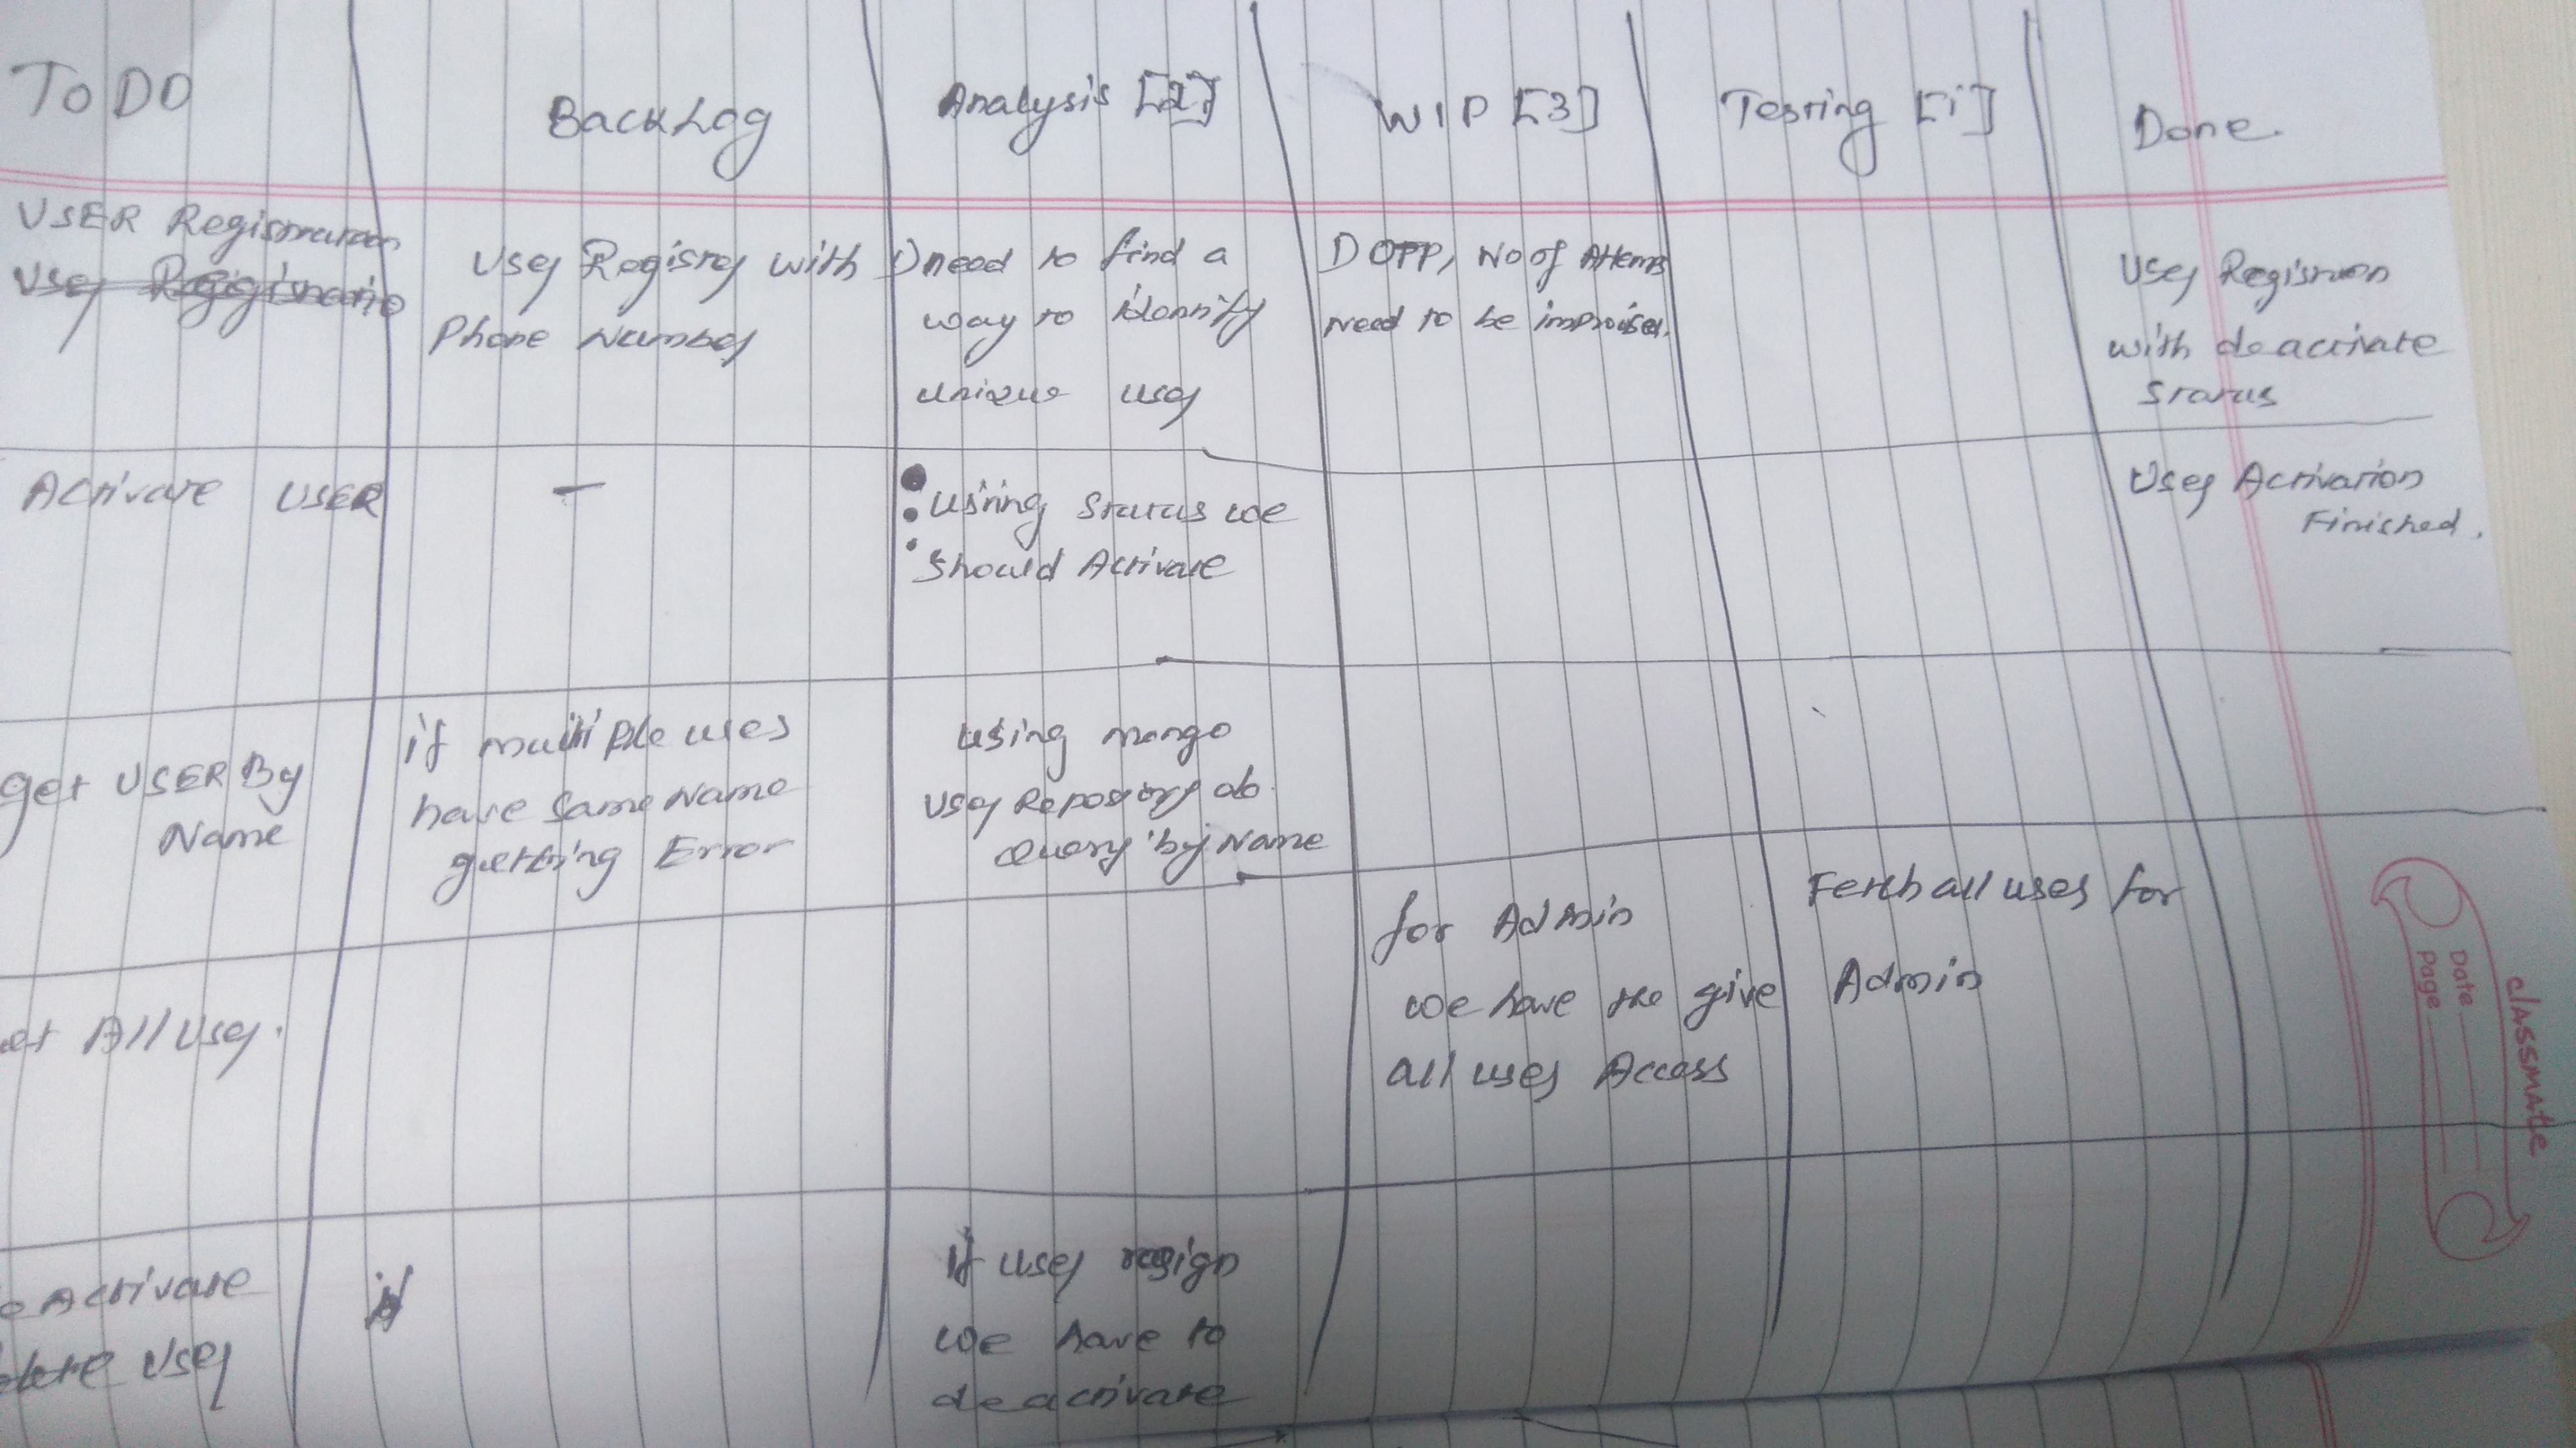 TO DO
BackLog
Analysis [2]
WIP [3]
Testing [1]
Done.
USER Registration
User Registratio
User Registry with
Phone Number
1) need to find a
way to identify
unique user
1) OTP, No of Attems
need to be improvised.
User Registration
with deactivate
Status
Activate USER
-
Using Status we
Should Activate
User Activation
Finished.
get USER By
Name
if multiple users
have Same Name
getting Error
Using mongo
User Repository do
Query by Name
et All User.
for Admin
We have the give
all user Access
Fetch all users for
Admin
e Activate
lete User
If user resign
we have to
deactivate
classmate
Date
Page